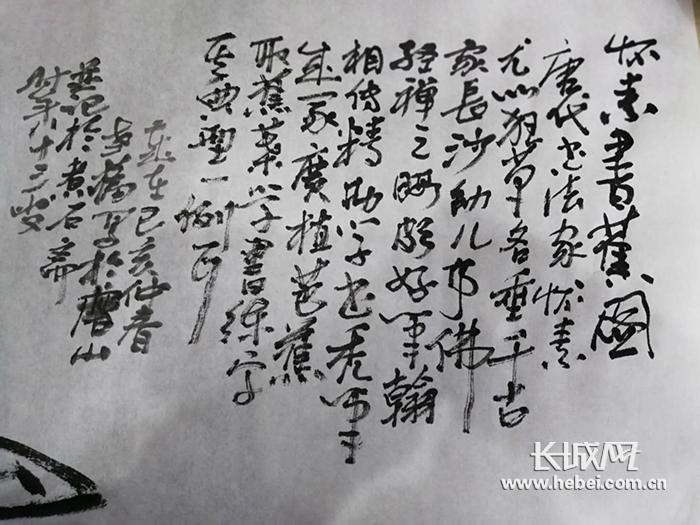 怀素书蕉图
唐代书法家怀素
尤以狂草名垂千古
家长沙幼儿事佛
经禅之暇颇好笔翰
相传精勤学书秃笔
成冢广植芭蕉
取蕉叶学书练字
其典型一例耳
岁在己亥仲春
写于唐山
并记于煮石斋
时年八十三岁
长城网
www.hebei.com.cn